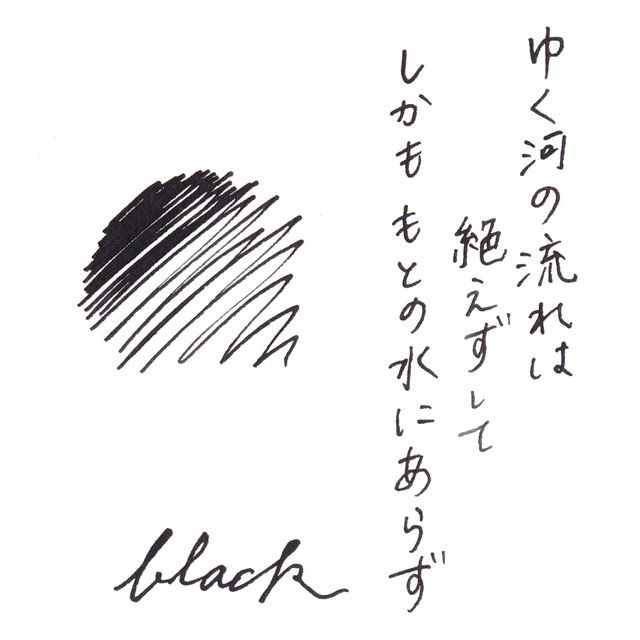 ゆく河の流れは
絶えずして
しかももとの水にあらず
black